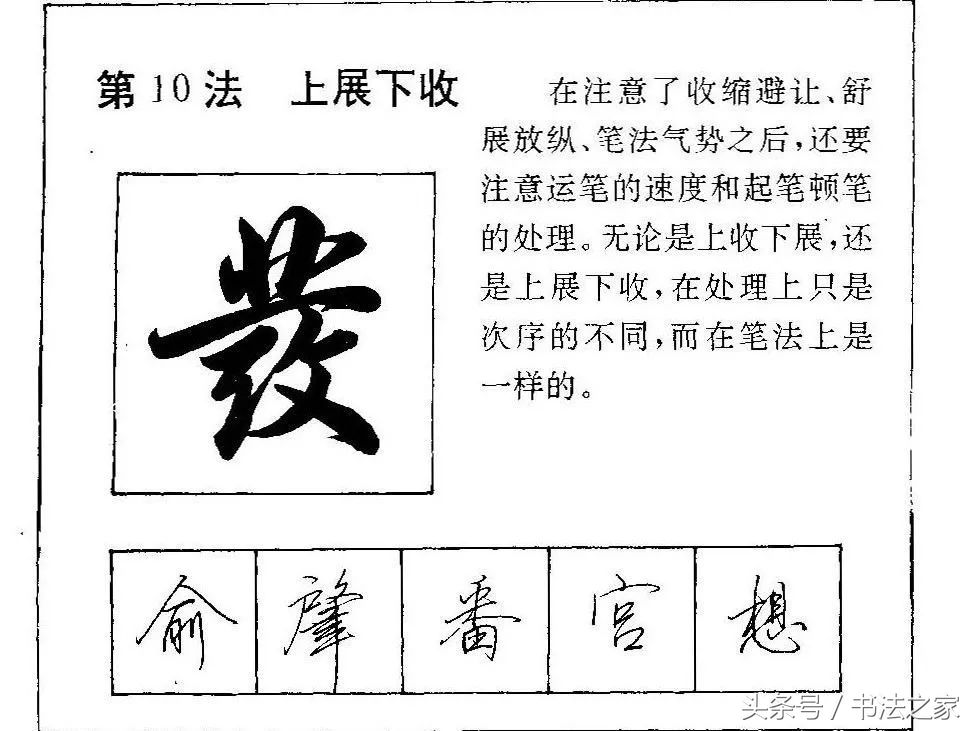 第10法 上展下收
在注意了收缩避让、舒
展放纵、笔法气势之后,还要
注意运笔的速度和起笔顿笔
的处理。无论是上收下展,还
是上展下收,在处理上只是
次序的不同,而在笔法上是
一样的。
發
俞 肇 番 宫 想
头条号 / 书法之家